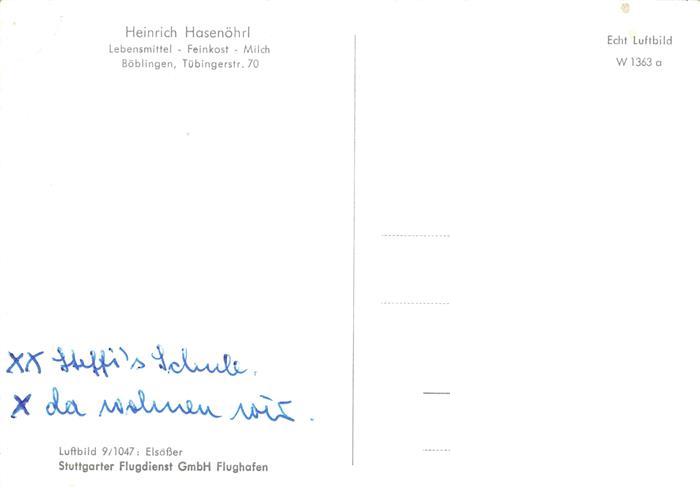 Heinrich Hasenöhrl
Lebensmittel - Feinkost - Milch
Böblingen, Tübingerstr. 70
Echt Luftbild
W 1363 a
XX Steffi's Schule.
X da wohnen wir.
Luftbild 9/1047: Elsäßer
Stuttgarter Flugdienst GmbH Flughafen